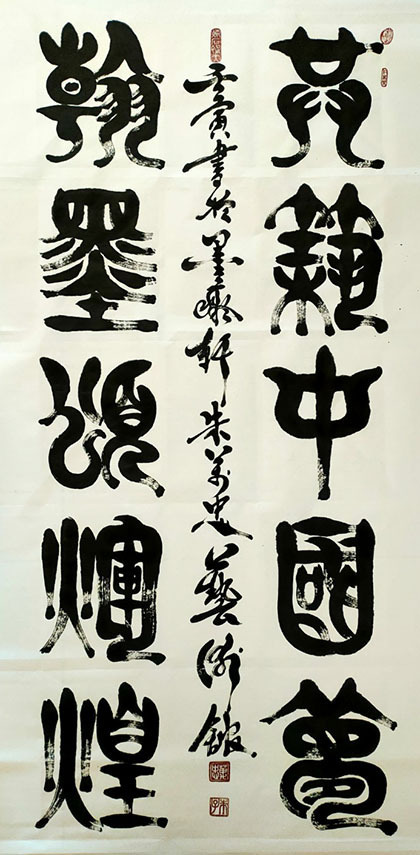 共築中國夢
壬寅書於墨軒朱萬忠藝術館
翰墨頌煇煌